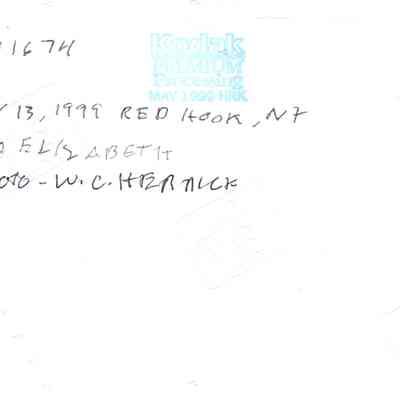 1674
Kodak
PREMIUM
Processing
MAY 1999 HRK
13, 1999 RED HOOK, NY
ELIZABETH
OTO - W. C. HERRICK